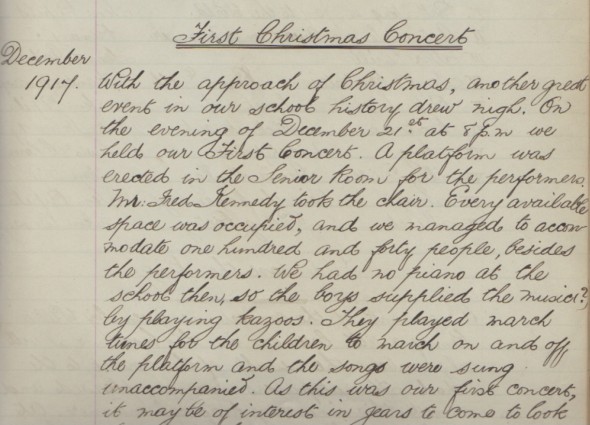 First Christmas Concert
December
1917.
With the approach of Christmas, another great
event in our school history drew nigh. On
the evening of December 21st at 8 p.m we
held our First Concert. A platform was
erected in the Senior Room for the performers.
Mr. Fred Kennedy took the chair. Every available
space was occupied, and we managed to accom-
modate one hundred and forty people, besides
the performers. We had no piano at the
school then, so the boys supplied the music(?)
by playing kazoos. They played march
tunes for the children to march on and off
the platform and the songs were sung
unaccompanied. As this was our first concert,
it may be of interest in years to come to look